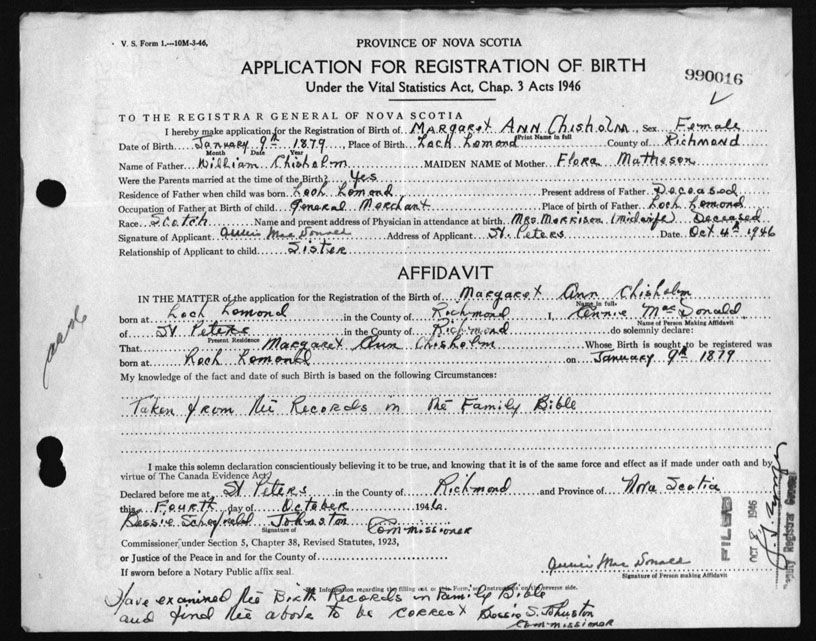 V. S. Form 1.—10M-3-46.
PROVINCE OF NOVA SCOTIA
APPLICATION FOR REGISTRATION OF BIRTH
990016
Under the Vital Statistics Act, Chap. 3 Acts 1946
TO THE REGISTRAR GENERAL OF NOVA SCOTIA
I hereby make application for the Registration of Birth of Margaret Ann Chisholm, Sex Female
Print Name in full
Date of Birth January 9th 1879, Place of Birth Loch Lomond County of Richmond
Month Date Year
Name of Father William Chisholm MAIDEN NAME of Mother Flora Matheson
Were the Parents married at the time of the Birth? Yes
Residence of Father when child was born Loch Lomond Present address of Father Deceased
Occupation of Father at Birth of child General Merchant Place of birth of Father Loch Lomond
Race Scotch Name and present address of Physician in attendance at birth Mrs. Morrison (midwife) Deceased
Signature of Applicant Annie Mac Donald Address of Applicant St. Peters Date Oct 4th 1946
Relationship of Applicant to child Sister
AFFIDAVIT
IN THE MATTER of the application for the Registration of the Birth of Margaret Ann Chisholm
Name in full
born at Loch Lomond in the County of Richmond I, Annie MacDonald
Name of Person Making Affidavit
of St Peters in the County of Richmond do solemnly declare:
Present Residence
That Margaret Ann Chisholm Whose Birth is sought to be registered was
born at Loch Lomond on January 9th 1879
My knowledge of the fact and date of such Birth is based on the following Circumstances:
Taken from the Records in the Family Bible
I make this solemn declaration conscientiously believing it to be true, and knowing that it is of the same force and effect as if made under oath and by
virtue of The Canada Evidence Act.
Declared before me at St Peters in the County of Richmond and Province of Nova Scotia
this Fourth day of October 1946
Bessie Johnston Commissioner
Signature of
Commissioner under Section 5, Chapter 38, Revised Statutes, 1923,
or Justice of the Peace in and for the County of
If sworn before a Notary Public affix seal.
Annie Mac Donald
Signature of Person making Affidavit
Information regarding the filling out of this Form, or Instructions, on the reverse side.
Have examined the Birth Records in Family Bible
and find the above to be correct Bessie S. Johnston
Commissioner
FILED
OCT 8 1946
Deputy Registrar General